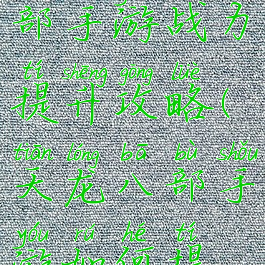 部手游战力
tí shēng gōng lüè
提升攻略(
tiān lóng bā bù shǒu
天龙八部手
yóu rú hé tí
游如何提